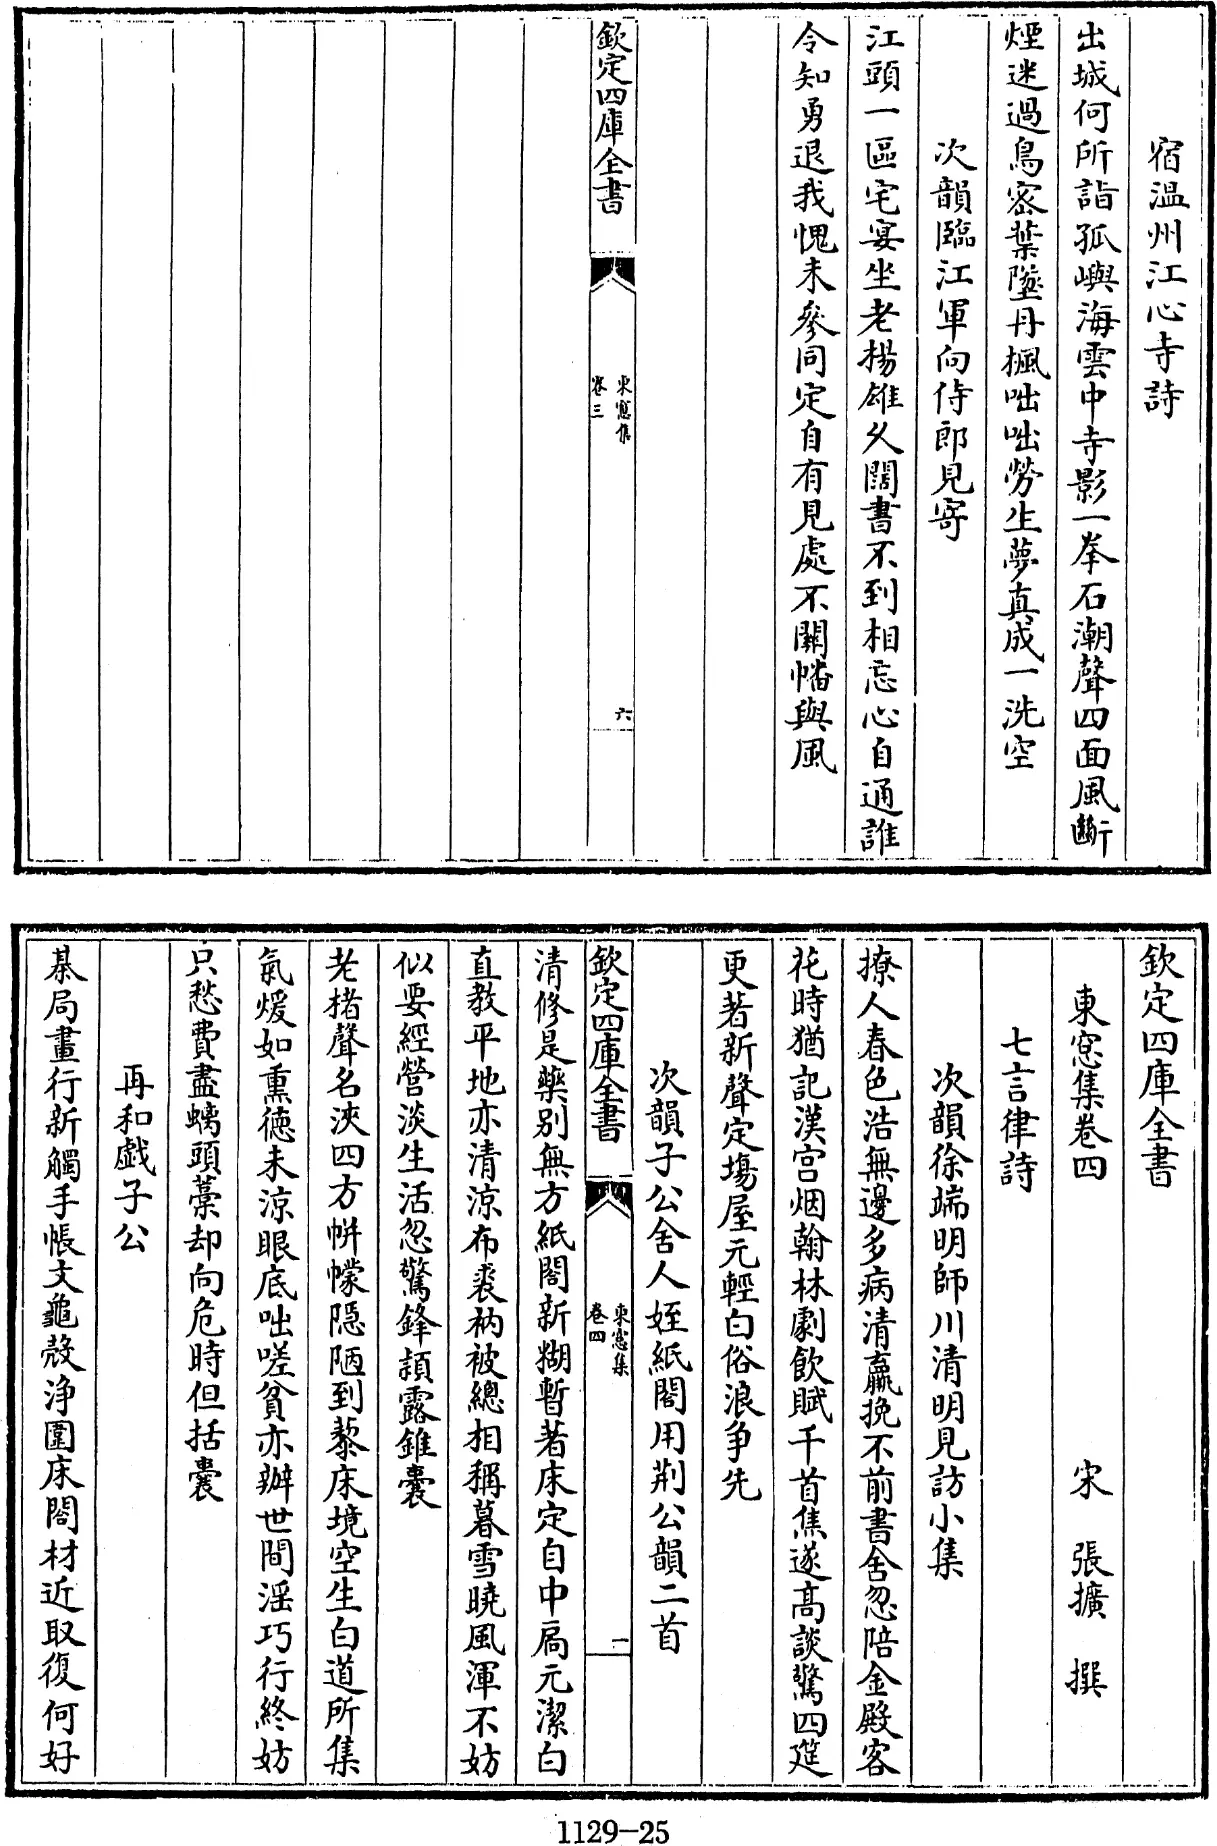 宿溫州江心寺詩
出城何所詣孤嶼海雲中寺影一拳石潮聲四面風斷
煙迷過鳥密葉墜丹楓咄咄勞生夢真成一洗空
次韻臨江軍向侍郎見寄
江頭一區宅宴坐老揚雄久闊書不到相忘心自通誰
令知勇退我愧未參同定自有見處不關幡與風
欽定四庫全書
東窓集
卷三
六
欽定四庫全書
東窓集卷四
宋 張擴 撰
七言律詩
次韻徐端明師川清明見訪小集
撩人春色浩無邊多病清羸挽不前書舍忽陪金殿客
花時猶記漢宮烟翰林劇飲賦千首焦遂高談驚四筵
更著新聲定塲屋元輕白俗浪争先
次韻子公舍人姪紙閣用荆公韻二首
欽定四庫全書
東窓集
卷四
一
清修是藥别無方紙閣新糊暫著床定自中扃元潔白
直教平地亦清涼布裘衲被總相稱暮雪曉風渾不妨
似要經營淡生活忽驚鋒頴露錐囊
老楮聲名浹四方帡幪隠陋到藜床境空生白道所集
氣煖如熏德未涼眼底咄嗟貧亦辦世間滛巧行終妨
只愁費盡螭頭藳却向危時但括囊
再和戲子公
棊局畫行新觸手帳文龜殼浄圍床閣材近取復何好
1129-25